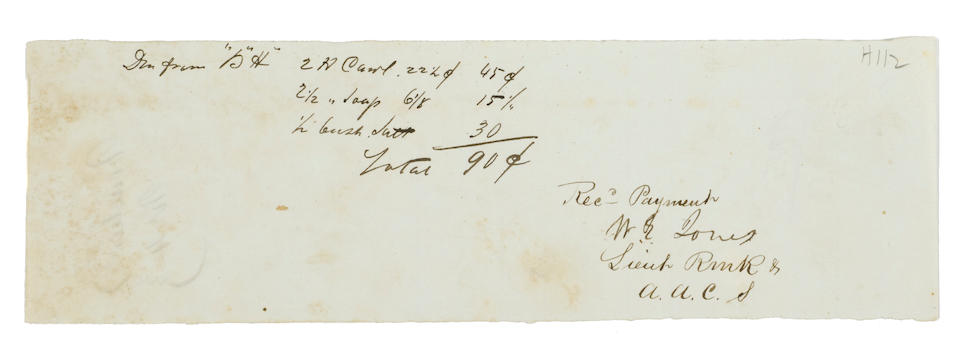 H112
Drn from "B" "H" 2 # Candl. 22½¢ 45¢
2½ " Soap 6⅛ 15
½ bush. Salt 30
Total 90¢
Recd Payment
W E Jones
Lieut R
A. A. C. S